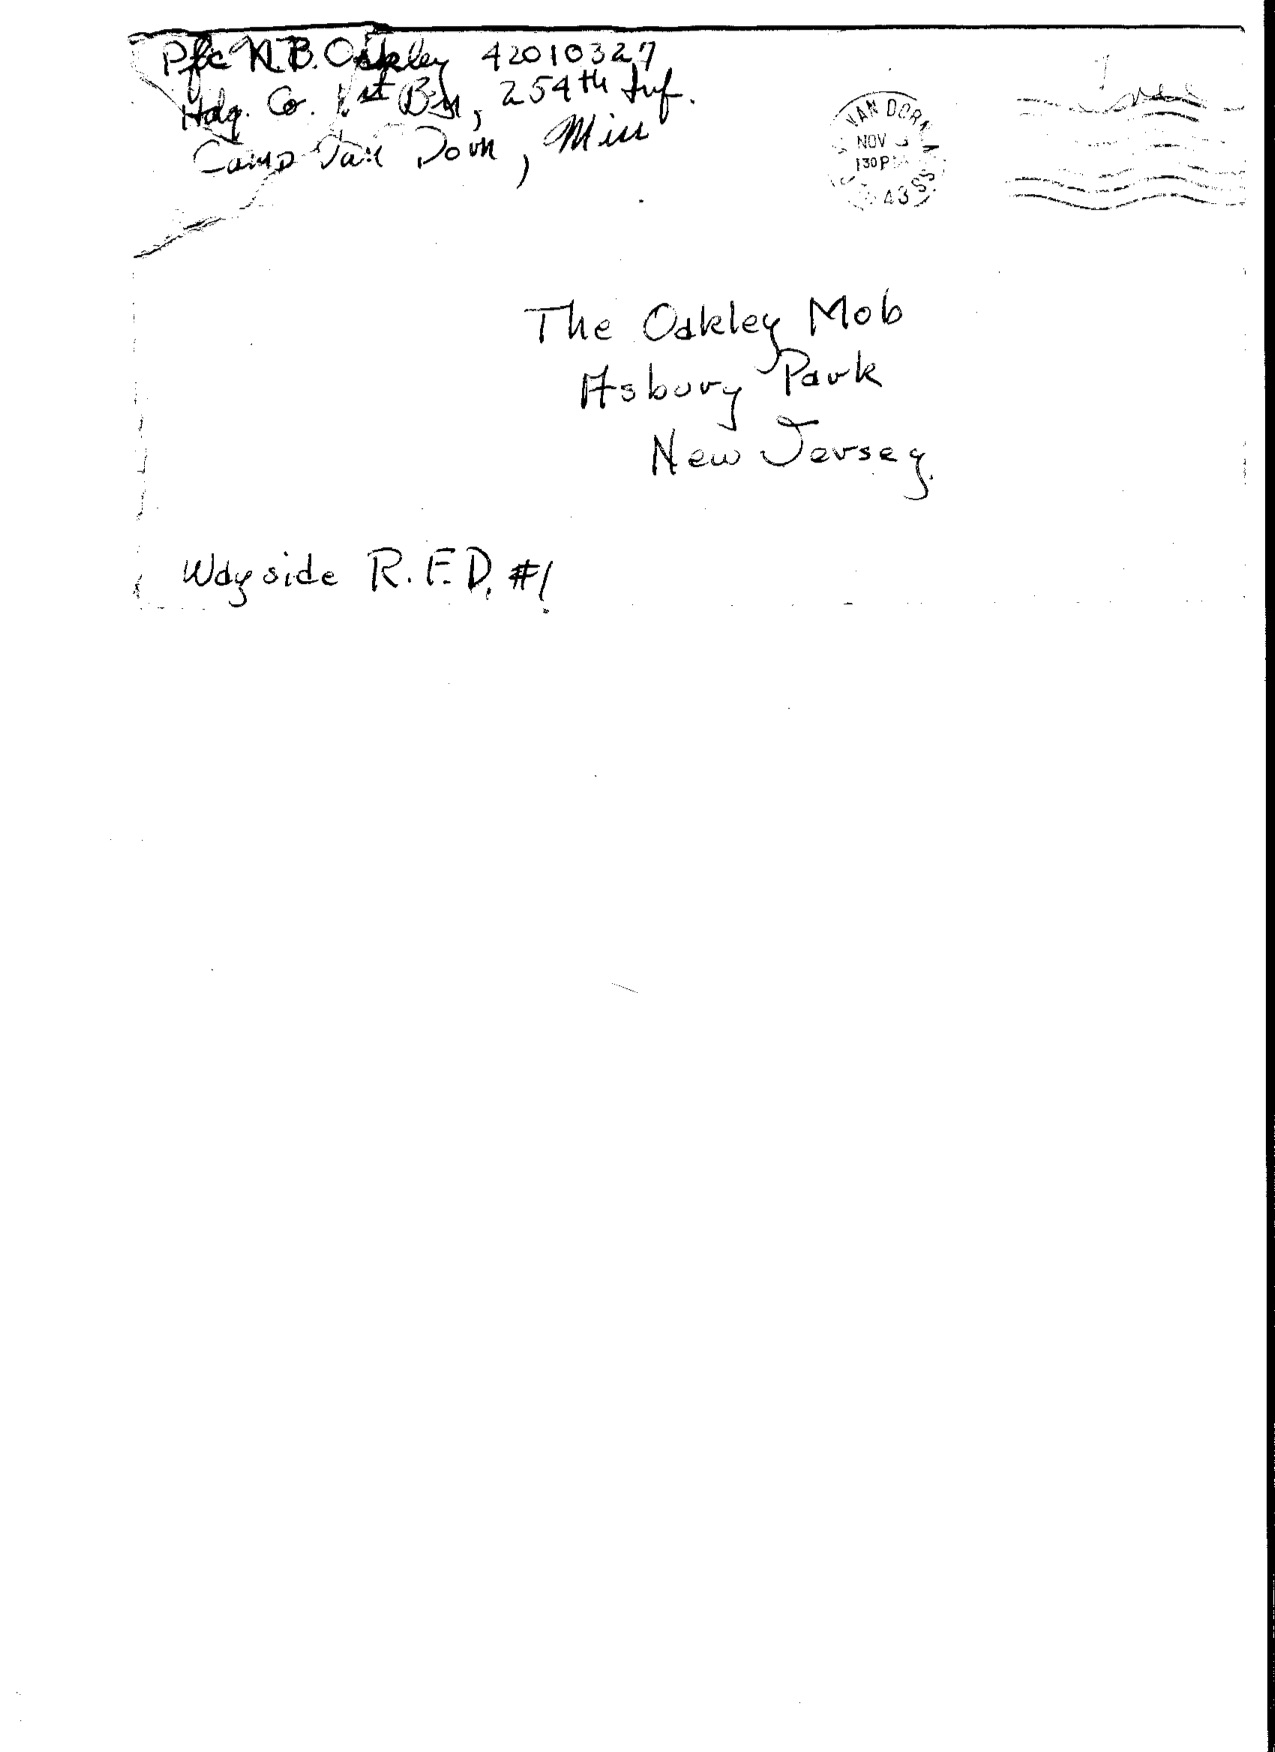 Pfc N.B. Oakley 42010327
Hdq. Co. 1st Bn, 254th Inf.
Camp Van Dorn, Miss
Free
VAN DORN
NOV
130 PM
43
MISS
The Oakley Mob
Asbury Park
New Jersey.
Wayside R.F.D. #1